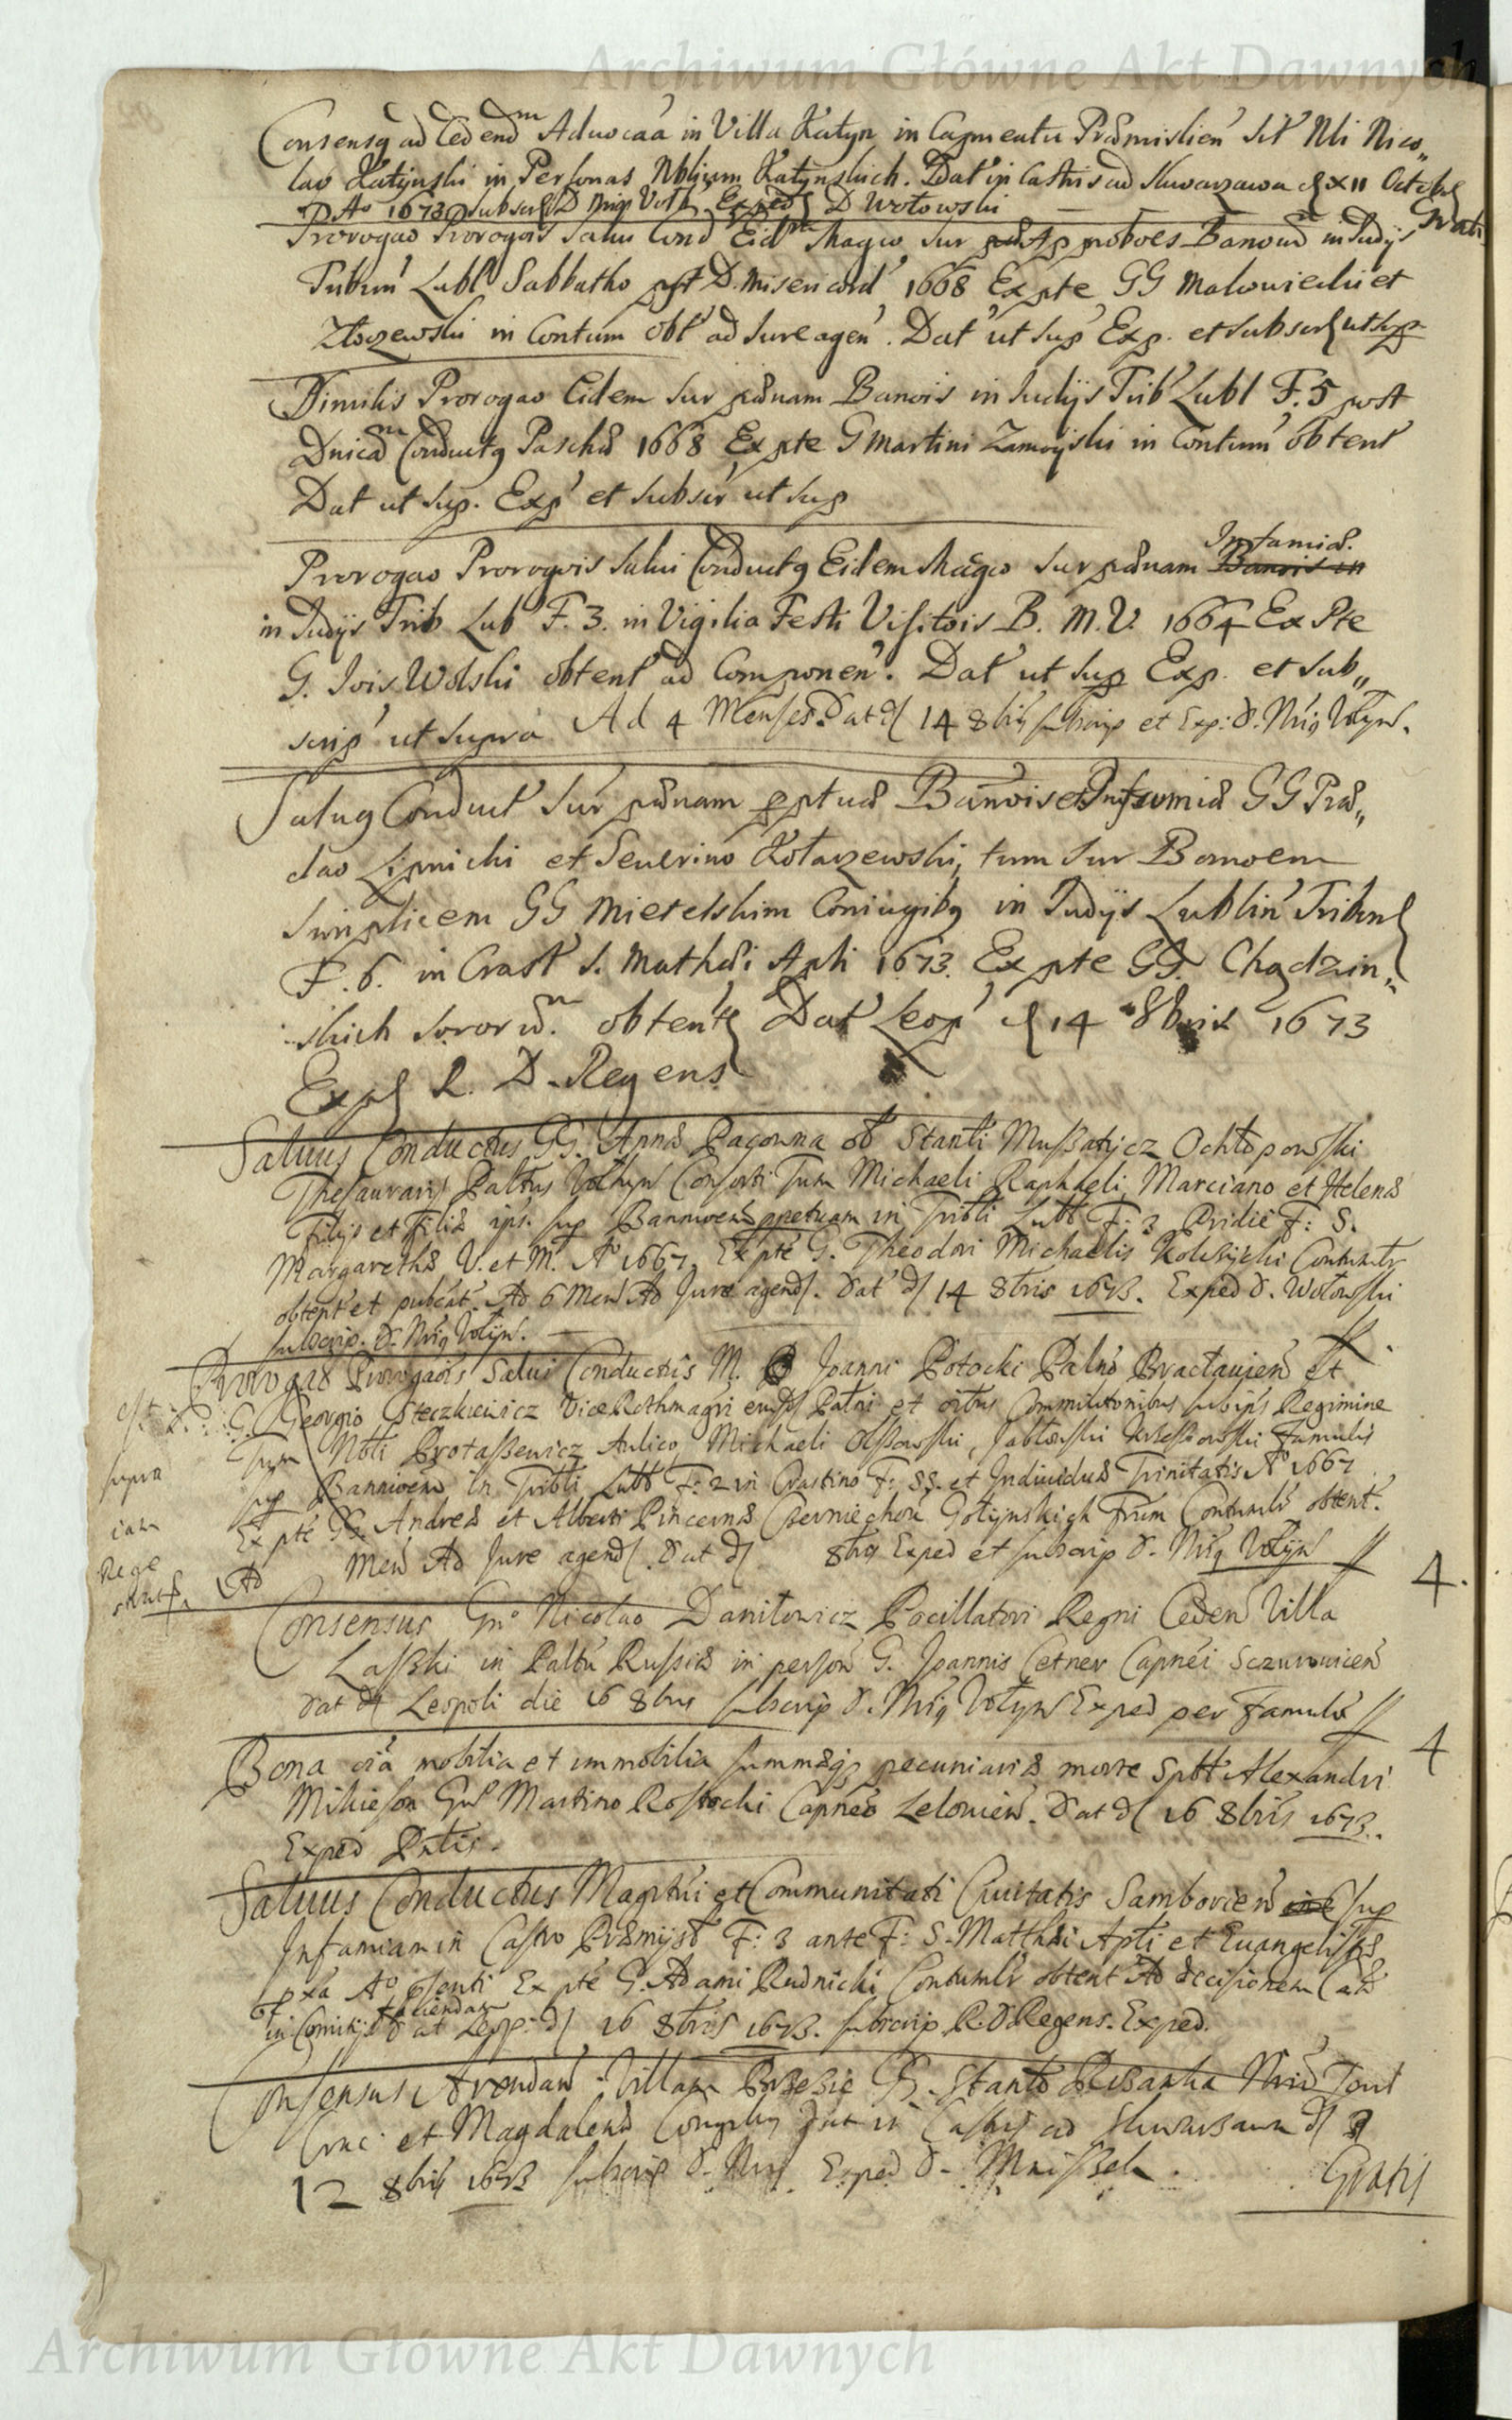 Archiwum Główne Akt Dawnych
Consensq ad Cedendm Aduocaa in Villa Katyn in Capneatu Præmislien sit Nli Nico„
lao Katynski in Personas Nblium Katynskich. Dat in Castris ad Skwarzawa d XII Octobr
Ao 1673 subscr D Mgr Voł. Exped D Wołowski Gratis
Prorogao Prorogois Salui Cond Eidm Magco sur proboes Banoum in Judijs
Tribun Lubl Sabbatho pst D. Misericord 1668 Ex pte GG Makowiecki et
Złoczewski in Contum obt ad Jure agen. Dat ut sup Exp. et subscr ut sup
Similis Prorogao Eidem sur pænam Banois in Judijs Trib Lubl F. 5 post
Dnicam Conductq Paschæ 1668 Ex pte G Martini Zamoyski in Contum obtent
Dat ut sup. Exp et subscr ut sup
Infamiæ.
Prorogao Prorogois Salui Conductq Eidem Magco sur pænam Banois in
in Judijs Trib Lub F. 3. in Vigilia Festi Visitois B. M. V. 1664 Ex Pte
G. Jois Wolski obtent ad Componen. Dat ut sup Exp. et sub„
scrip ut supra Ad 4 Menses. Dat d 14 8bris subscrip et Exp: D. Mrg Wołyn.
Saluq Conduct sur pænam pptuæ Banois et Infamiæ GG Præ„
clao Lipnicki et Seuerino Kołaczewski, tum sur Banoem
simplicem GG Mietelskim Coniugibq in Judijs Lublin Tribnl
F. 6. in Crast S. Mathæi Apli 1673. Ex pte GG. Chądzin„
skich Sororum obtent Dat Leop d 14 8bris 1673
Exp R. D. Regens
Saluus Conductus GG. Annæ Pacowna ol Stanli Mussatycz Ochłopowski
Thesaurarij Paltus Volhyn Consorti Tum Michaeli Raphaeli Marciano et Helenæ
Filijs et Filiæ ips. sup Bannoem ppetuam in Tribli Lubl F: 3 Pridie F: S.
Margarethæ V. et M. Ao 1667. Ex pte G. Theodori Michaelis Kolczycki Contumlr
obtent et publcat. Ad 6 Men Ad Jure agend. Dat d 14 8bris 1673. Exped D. Wołowski
subscrip. D. Mrg Wołyn.
Prorogao Prorogaois Salui Conductus M. Joanni Potocki Palno Bracłauien et
G. Georgio Steczkiewicz Vice Rothmagri eiusd Palni et oibus Commilitonibus sub ips Regimine
Tum Nbli Protassewicz Aulico, Michaeli Olszowski, Jabłonski Famulis
sup Bannioem in Tribli Lubl F: 2 in Crastino F: SS. et Indiuiduæ Trinitatis Ao 1667
Ex pte GG. Andreæ et Alberti Pincernæ Czerniechou Gołynskich Frum Contumlr obtent.
Ad Men Ad Jure agend. Dat d 8bris Exped et subscrip D. Mrg Wołyn
est
supra
iam
Rege
strat
Consensus Gn° Nicolao Daniłowicz Pocillatori Regni Ceden Villa
Laszki in Paltu Russiæ in person G. Joannis Cetner Capnei Sczurowicen
Dat d Leopoli die 16 8bris subscrip D. Mrg Wołyn Exped per Famulu
4.
Bona oia mobilia et immobilia summæq pecuniariæ morte Spbl Alexandri
Mikieson Gn Martino Rostocki Capneo Lelowien. Dat d 16 8bris 1673.
Exped Pntis.
4
Saluus Conductus Magrtui et Communitati Ciuitatis Samborien sup
Infamiam in Castro Præmysl F: 3 ante F: S. Matthæi Apli et Euangelistæ
pxa Ao psenti Ex pte G. Adami Rudnicki Contumlr obtent Ad decisionem Cau
in Comitijs faciendam Dat Leop: d 16 8bris 1673. subscrip R. D Regens. Exped.
Consensus Arendan Villam Brzezie G. Stanlo Pisarka
et Magdalenæ Coniugibq Dat in Castris ad Skwarzawa d
12 8bris 1673 subscrip D. Mrg Exped D. Mniszek. Gratis
Archiwum Główne Akt Dawnych